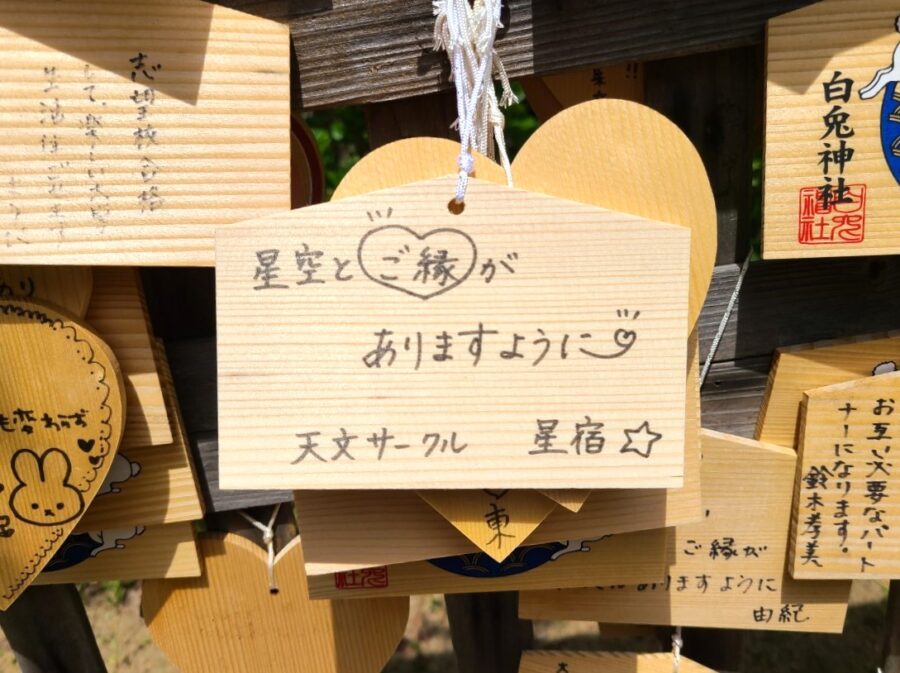 星空とご縁が
ありますように
天文サークル 星宿☆
志望校合格
して、楽しい大学
生活
白兎神社
も変わらず
東
ご縁が
ありますように
由紀
お互い必要なパート
ナーになります。
鈴木孝美